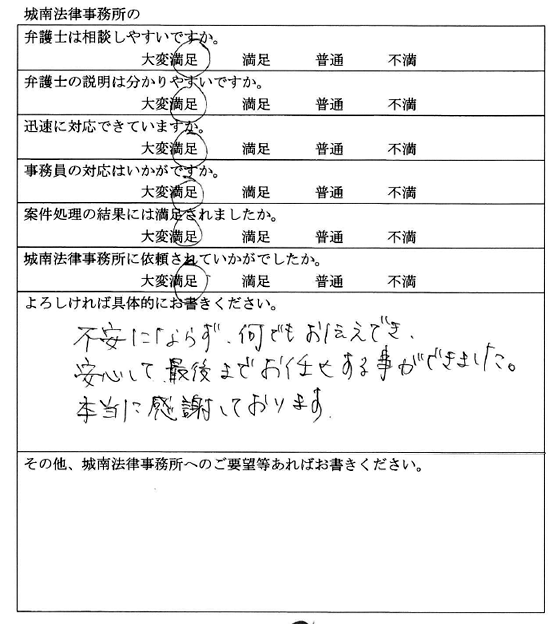 城南法律事務所の
弁護士は相談しやすいですか。
大変満足 満足 普通 不満
弁護士の説明は分かりやすいですか。
大変満足 満足 普通 不満
迅速に対応できていますか。
大変満足 満足 普通 不満
事務員の対応はいかがですか。
大変満足 満足 普通 不満
案件処理の結果には満足されましたか。
大変満足 満足 普通 不満
城南法律事務所に依頼されていかがでしたか。
大変満足 満足 普通 不満
よろしければ具体的にお書きください。
不安にならず、何でもお伝えでき、
安心して最後までお任せする事ができました。
本当に感謝しております。
その他、城南法律事務所へのご要望等あればお書きください。